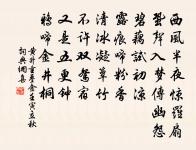 西風半夜驚羅扇
蛩聲入夢傳幽怨
碧藕試初涼
露痕啼粉香
清冰凝簟竹
不許雙鴛宿
又是五更鐘
鴉啼金井桐
黃升重疊金壬寅立秋
詞典網書